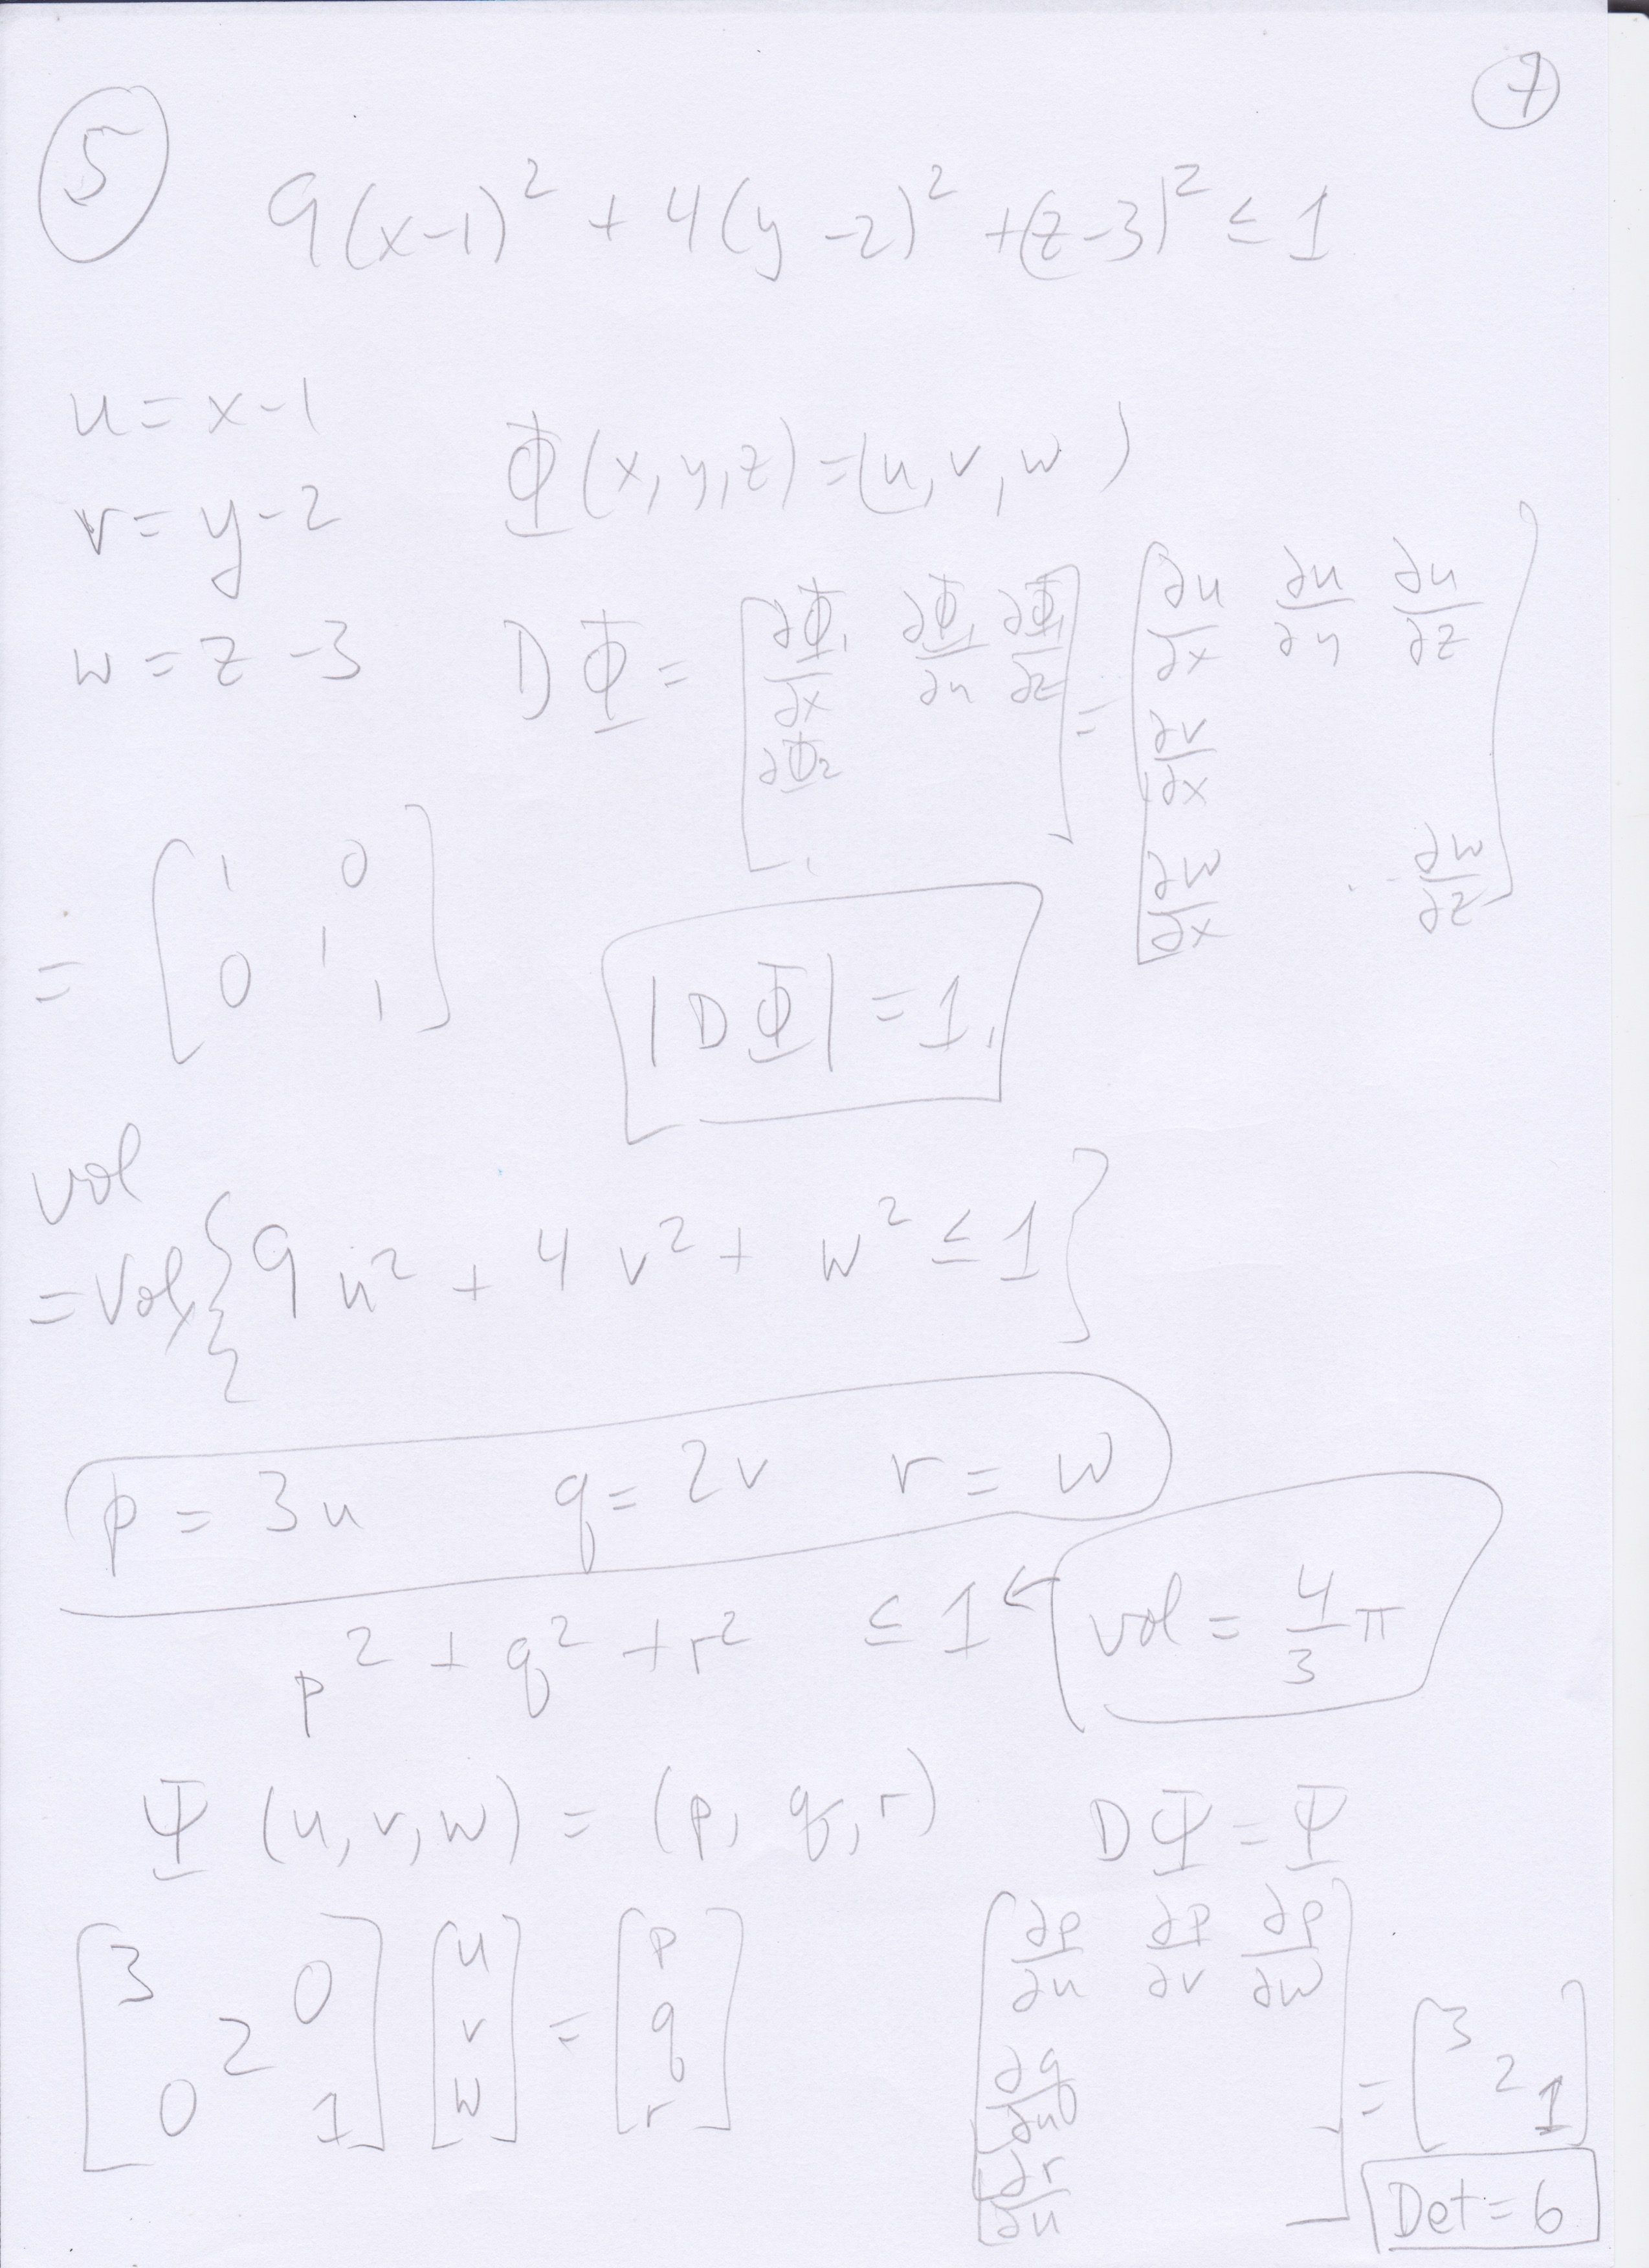 7
5
9(x-1)² + 4(y-2)² + (z-3)² ≤ 1
u = x-1
Φ(x,y,z) = (u,v,w)
v = y-2
w = z-3
DΦ = [∂Φ₁/∂x ∂Φ₁/∂y ∂Φ₁/∂z ∂Φ₂] = [∂u/∂x ∂u/∂y ∂u/∂z ∂v/∂x ∂w/∂x ... ∂w/∂z]
= [1 0 1 0 1]
|DΦ| = 1.
vol
= Vol{9u² + 4v² + w² ≤ 1}
p = 3u q = 2v r = w
p² + q² + r² ≤ 1 ← vol = 4/3 π
Ψ(u,v,w) = (p,q,r) DΨ = Ψ
[3 0 2 0 1] [u v w] = [p q r]
[∂p/∂u ∂p/∂v ∂p/∂w ∂q/∂u ∂r/∂u] = [3 2 1]
Det = 6